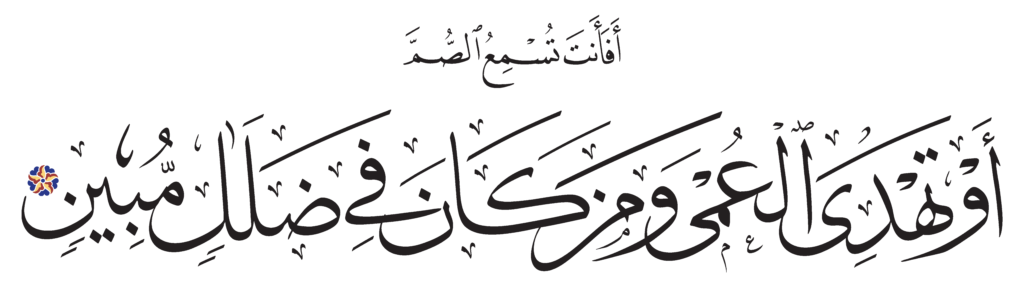 أَفَأَنتَ تُسْمِعُ ٱلصُّمَّ
أَوْ تَهْدِى ٱلْعُمْىَ وَمَن كَانَ فِى ضَلَٰلٍ مُّبِينٍ